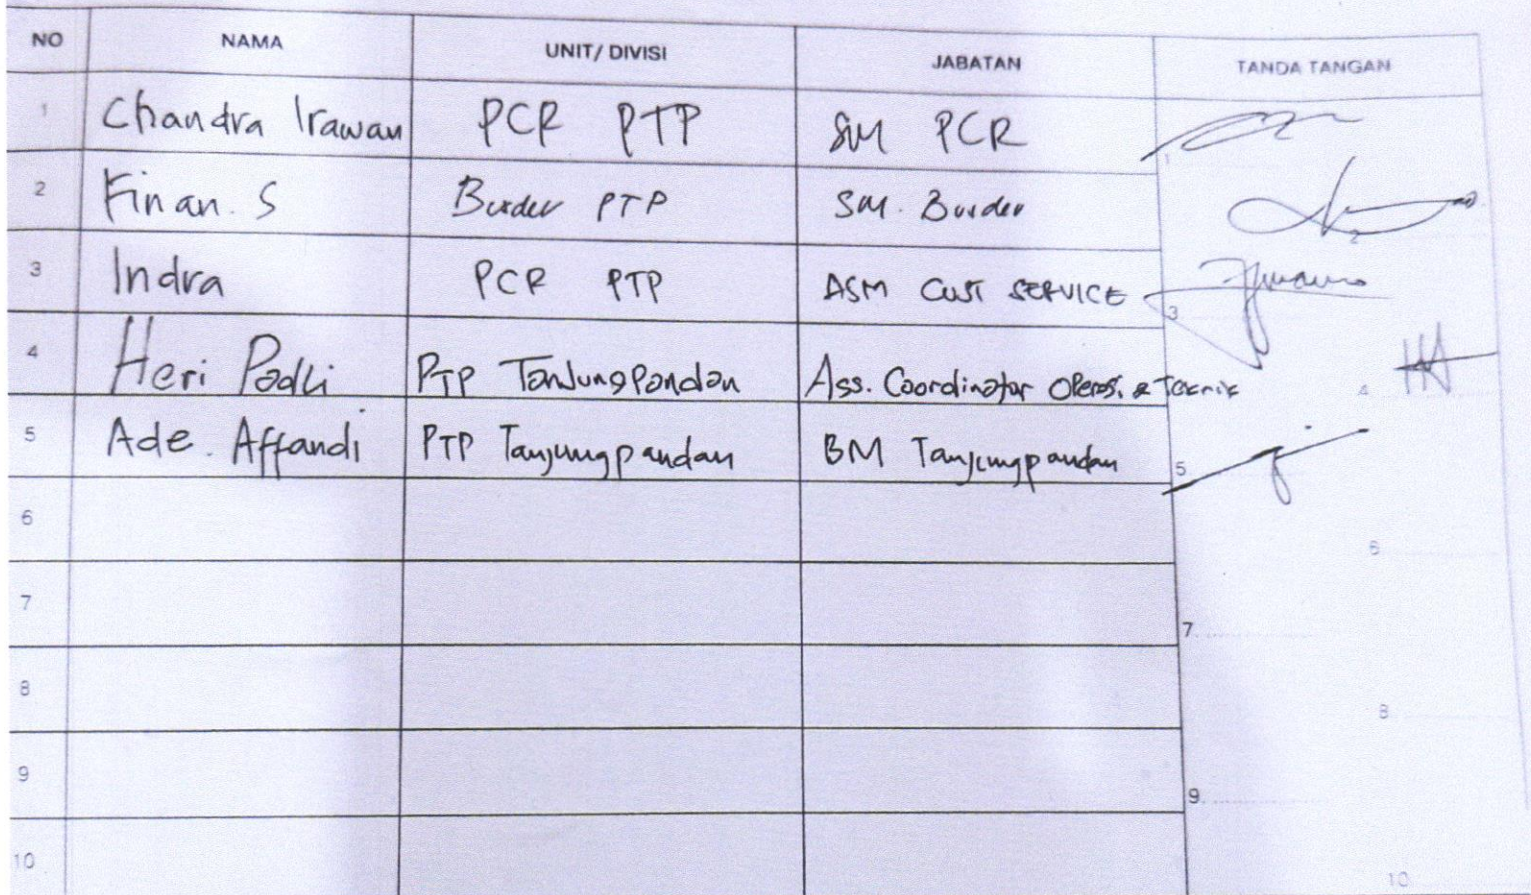 NO NAMA UNIT/ DIVISI JABATAN TANDA TANGAN
1 Chandra Irawan PCR PTP SM PCR 1
2 Finan. S PTP SM. 2
3 Indra PCR PTP ASM CUST SERVICE 3
4 Heri Padli PTP Tanjungpandan Ass. Coordinator Operasi & Teknik 4
5 Ade. Affandi PTP Tanjungpandan BM Tanjungpandan 5
6 6
7 7.
8 8
9 9.
10 10